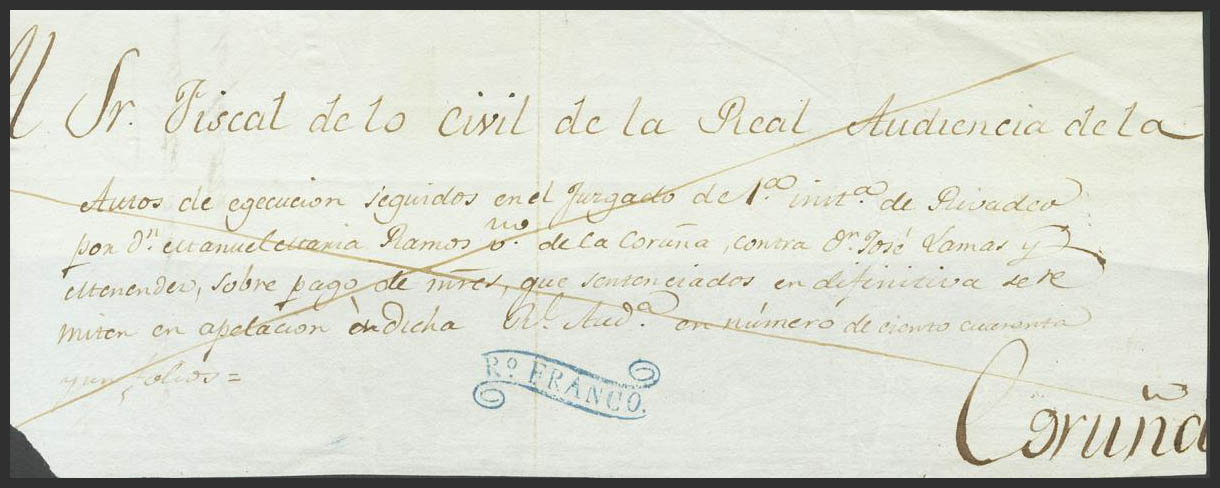 Al Sr. Fiscal de lo Civil de la Real Audiencia de la
Autos de egecucion seguidos en el Juzgado de 1.ª inst.ª de Rivadeo
por Dn. Manuel Maria Ramos vº. de la Coruña, contra Dn. José Lamas y
Menender, sobre pago de mrës, que sentenciados en definitiva se re
miten en apelacion â dicha Rl. Aud.ª en número de ciento cuarenta
y un folios=
Rº. FRANCO.
Coruña